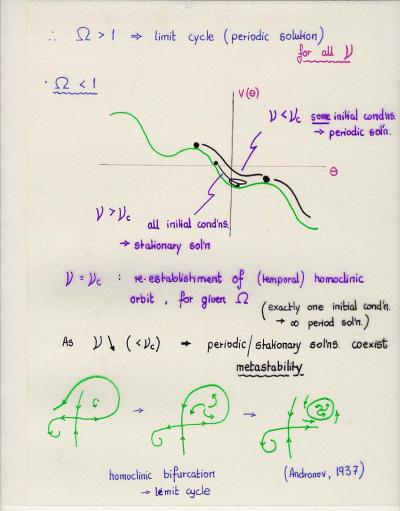 ∴ Ω > 1 ⇒ limit cycle (periodic solution)
for all ν
· Ω < 1
V(θ)
ν < νc some initial cond'ns.
→ periodic sol'n.
θ
ν > νc all initial cond'ns.
→ stationary sol'n
ν = νc : re-establishment of (temporal) homoclinic
orbit, for given Ω
(exactly one initial cond'n.
→ ∞ period sol'n.)
As ν ↘ (< νc) → periodic/stationary sol'ns. coexist
metastability
→ →
homoclinic bifurcation
→ limit cycle
(Andronov, 1937)